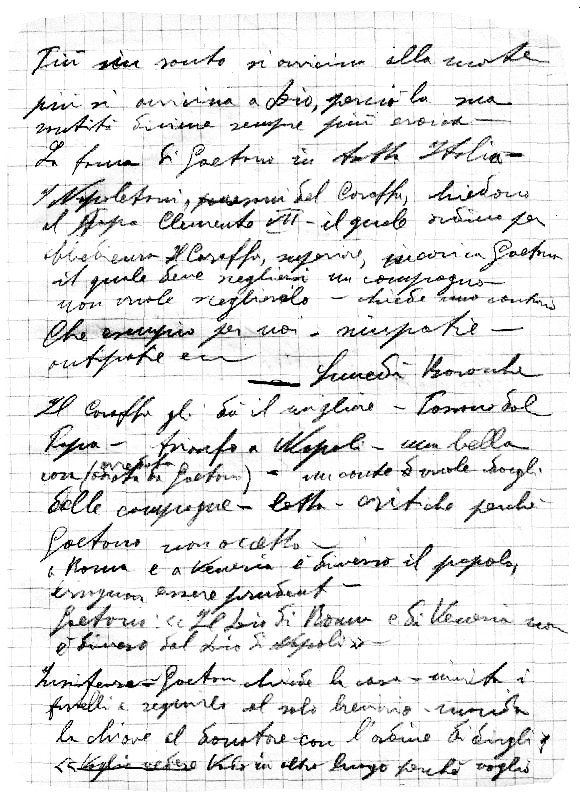 Più un santo si avvicina alla morte
più si avvicina a Dio, perciò la sua
santità diviene sempre più eroica —
La fama di Gaetano in tutta Italia —
I Napoletani, del Caraffa, chiedono
al Papa Clemente VII — il quale ordina per
obbedienza Il Caraffa, superiore, incarica Gaetano
il quale deve scegliersi un compagno
non vuole sceglierselo — chiede uno
Che esempio per noi — simpatie —
antipatie ecc
Lunedì
Il Caraffa gli dà il migliore — dal
Papa — trionfo a Napoli — una bella
casa ( da Gaetano) — un conte vuole dargli
delle campagne — lotta — critiche perché
Gaetano non accetta —
a Roma e a Venezia è diverso il popolo,
bisogna essere prudenti —
Gaetano: « Il Dio di Roma e di Venezia non
è diverso dal Dio di Napoli » —
Insistenze — Gaetano chiude la casa — invita i
fratelli a seguirlo col solo breviario — manda
la chiave al donatore con l'ordine di dirgli:
« Voglio vedere Vado in altro luogo perché voglio